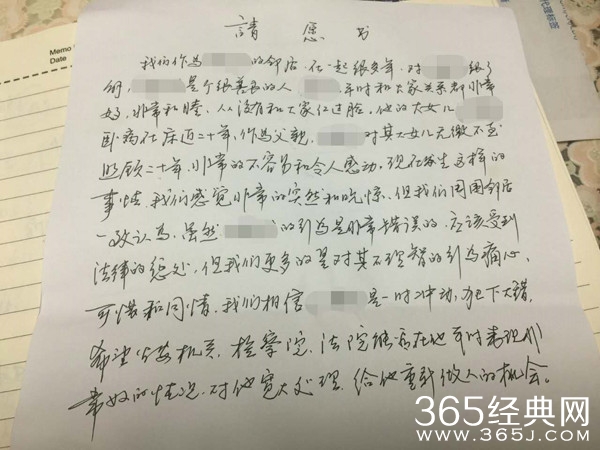 Memo
Date
代理标签
請愿书
我们作为 的邻居,在一起很多年,对 很了
解, 是个很善良的人, 平时和大家关系都非常
好,非常和睦,从没有和大家红过脸,他的大女儿
卧病在床近二十年,作为父亲, 对其女儿无微不至
照顾二十年,非常的不容易和令人感动,现在发生这样的
事情,我们感觉非常的突然和吃惊,但我们周围邻居
一致认为,虽然 的行为是非常错误的,应该受到
法律的惩处,但我们更多的是对其不理智的行为痛心,
可惜和同情,我们相信 是一时冲动,犯下大错,
希望公安机关、检察院、法院能否在他平时表现非
常好的情况,对他宽大处理,给他重新做人的机会。
365经典网
www.365j.com